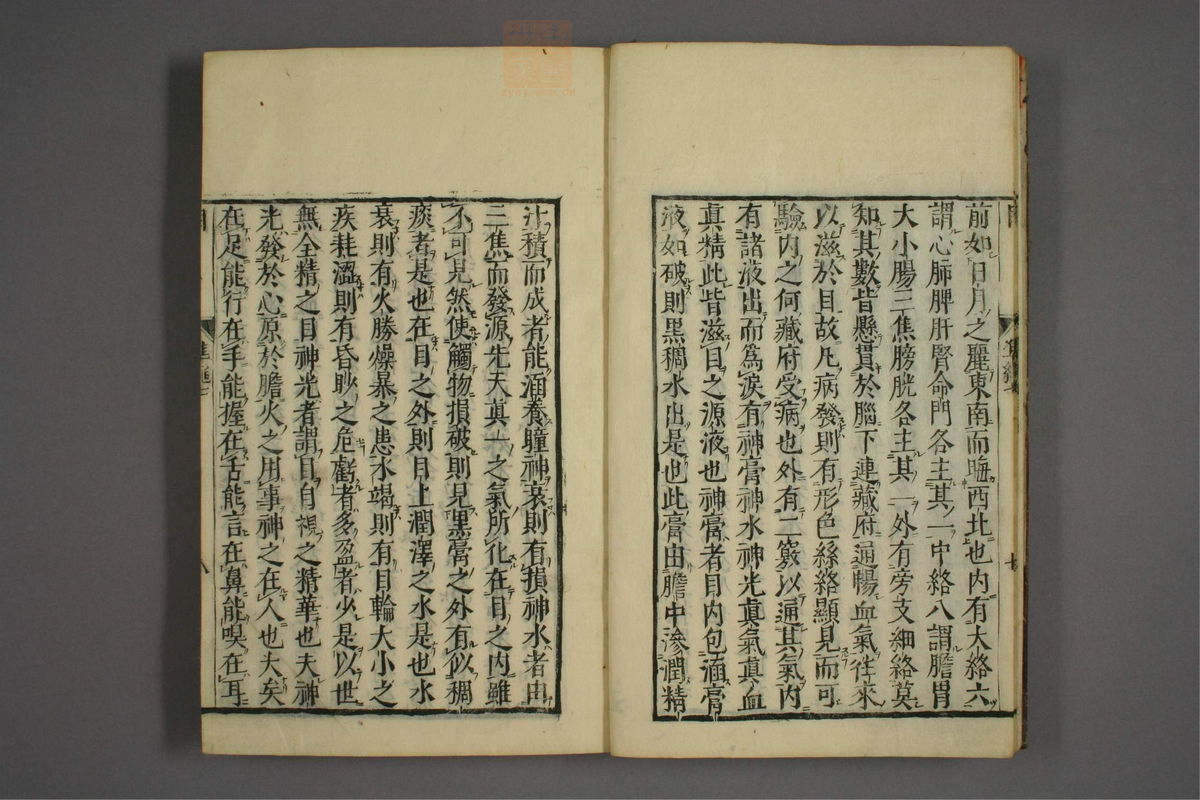 前如日月之麗東南而晦西北也內有大絡六
謂心肺脾肝腎命門各主其一中絡八謂膽胃
大小腸三焦膀胱各主其一外有旁支細絡莫
知其數皆懸貫於腦下連藏府通暢血氣徃來
以滋於目故凡病發則有形色絲絡顯見而可
驗內之何藏府受病也外有二竅以通其氣內
有諸液出而為淚有神膏神水神光眞氣眞血
眞精此皆滋目之源液也神膏者目內包涵膏
液如破則黑稠水出是也此膏由膽中滲潤精
汁積而成者能涵養瞳神衰則有損神水者由
三焦而發源先天眞一之氣所化在目之內雖
不可見然使觸物損破則見黑膏之外有似稠
痰者是也在目之外則目上潤澤之水是也水
衰則有火勝燥暴之患水竭則有目輪大小之
疾耗澀則有昏眇之危虧者多盈者少是以世
無全精之目神光者謂目自視之精華也夫神
光發於心原於膽火之用事神之在人也大矣
在足能行在手能握在舌能言在鼻能嗅在耳